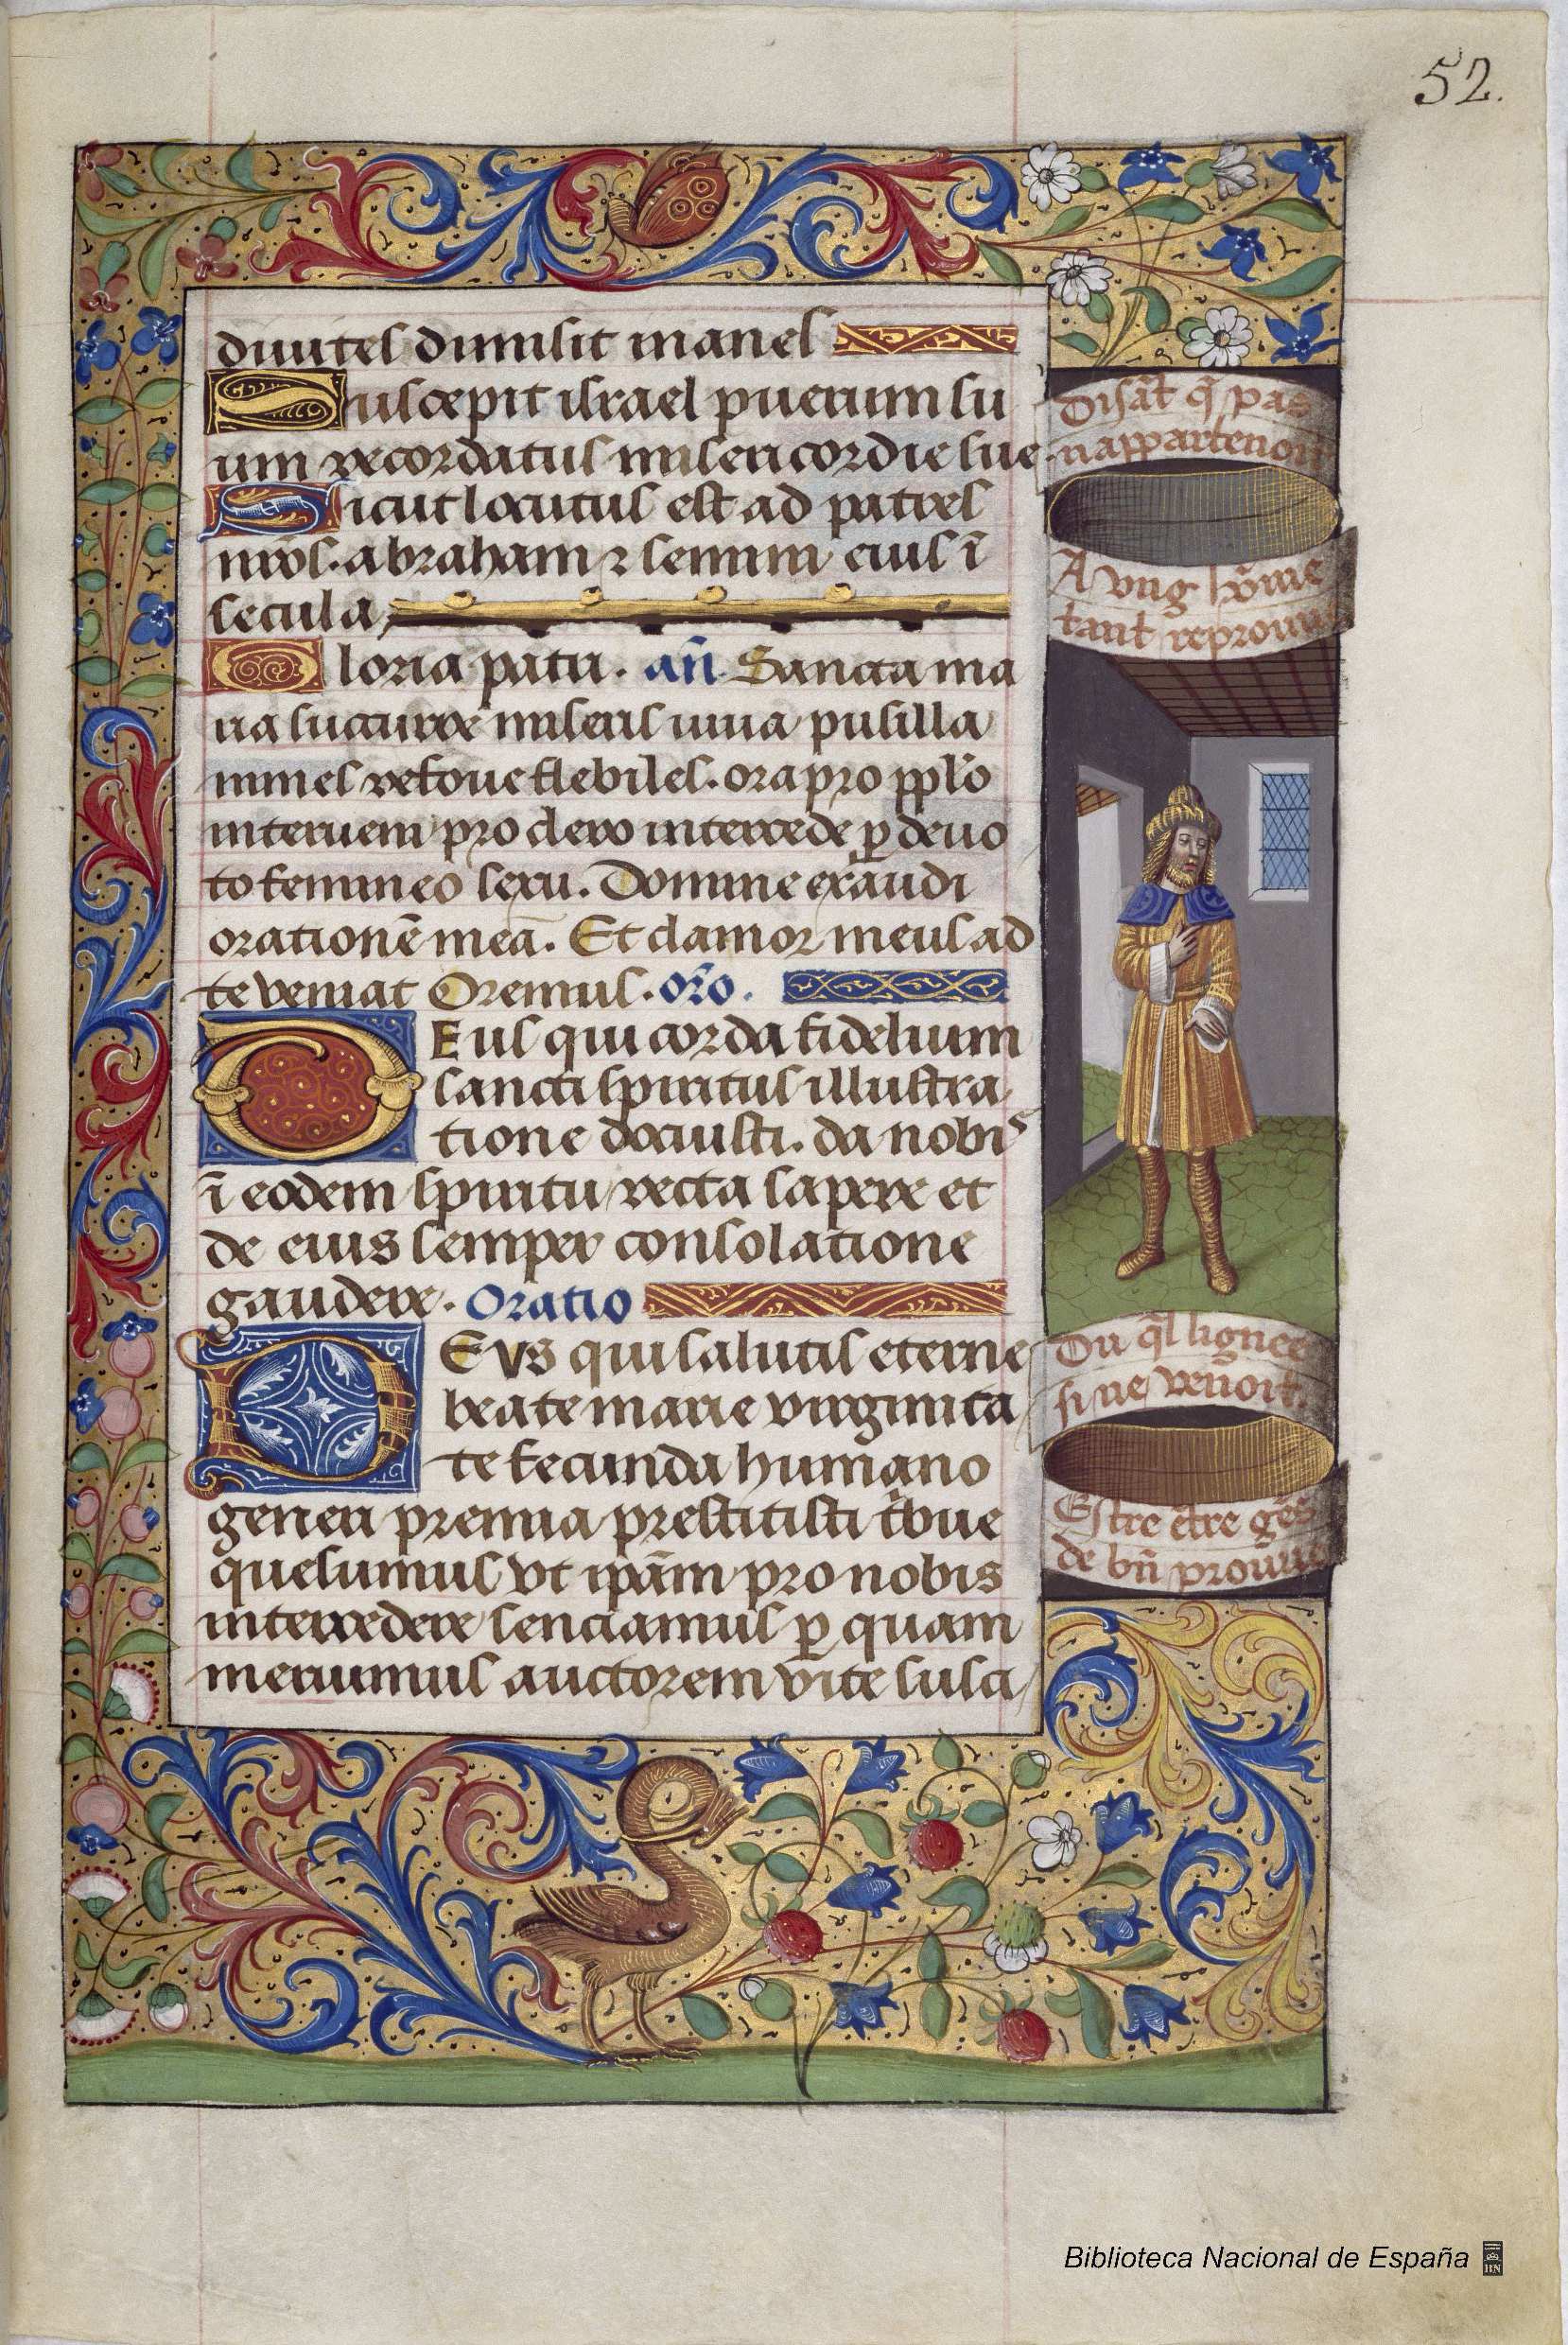 52.
diuites dimisit inanes
Suscepit israel puerum su
um recordatus misericordie sue.
Sicut locutus est ad patres
nr̄os. abraham ⁊ semini eius ī
secula
Gloria patri. añ. Sancta ma
ria succurre miseris iuua pusilla
nimes refoue flebiles. ora pro pplo
interueni pro clero intercede p̱ deuo
to femineo sexu. Domine exaudi
orationē meā. Et clamor meus ad
te veniat Oremus. oro.
DEus qui corda fidelium
sancti spiritus illustra
tione docuisti. da nobis
ī eodem spiritu recta sapere et
de eius semper consolatione
gaudere. Oratio
DEVS qui salutis eterne
beate marie virginita
te fecunda humano
generi premia prestitisti tͥbue
quesumus vt ipām pro nobis
intercedere senciamus p̱ quam
meruimus auctorem vite susci
Disāt q̄ pas
nappartenoit
A vng hōme
tant reprouu
Du q̄l lignee
si ne venoit.
Estre etre gēs
de bn̄ prouu
Biblioteca Nacional de España